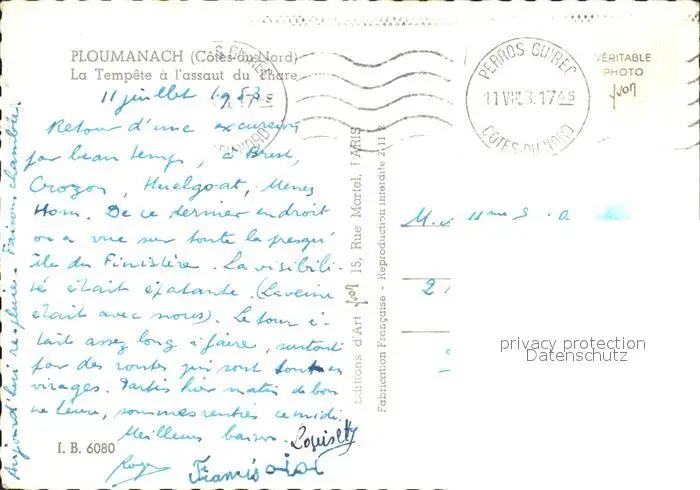 PLOUMANACH (Côtes-du-Nord)
La Tempête à l'assaut du Phare
11 juillet 1953
Retour d'une excursion
par beau temps, à Brest,
Crozon, Huelgoat, Menez
Hom. De ce dernier endroit
on a vue sur toute la presqu'
île du Finistère. La visibili-
té était épatante. (La veine
était avec nous). Le tour é-
tait assez long à faire, surtout
par des routes qui sont tout en
virages. Partis hier matin de bon
ne heure, sommes rentrés ce midi.
Meilleurs baisers. Louisette
Roger Francis
I. B. 6080
Aujourd'hui re-pluie. Faisons chambrée.
Editions d'Art Yvon 15, Rue Martel, PARIS
Fabrication Française - Reproduction interdite
PERROS GUIREC
11 VII 53. 17 45
COTES-DU-NORD
VÉRITABLE
PHOTO
yvon
privacy protection
Datenschutz